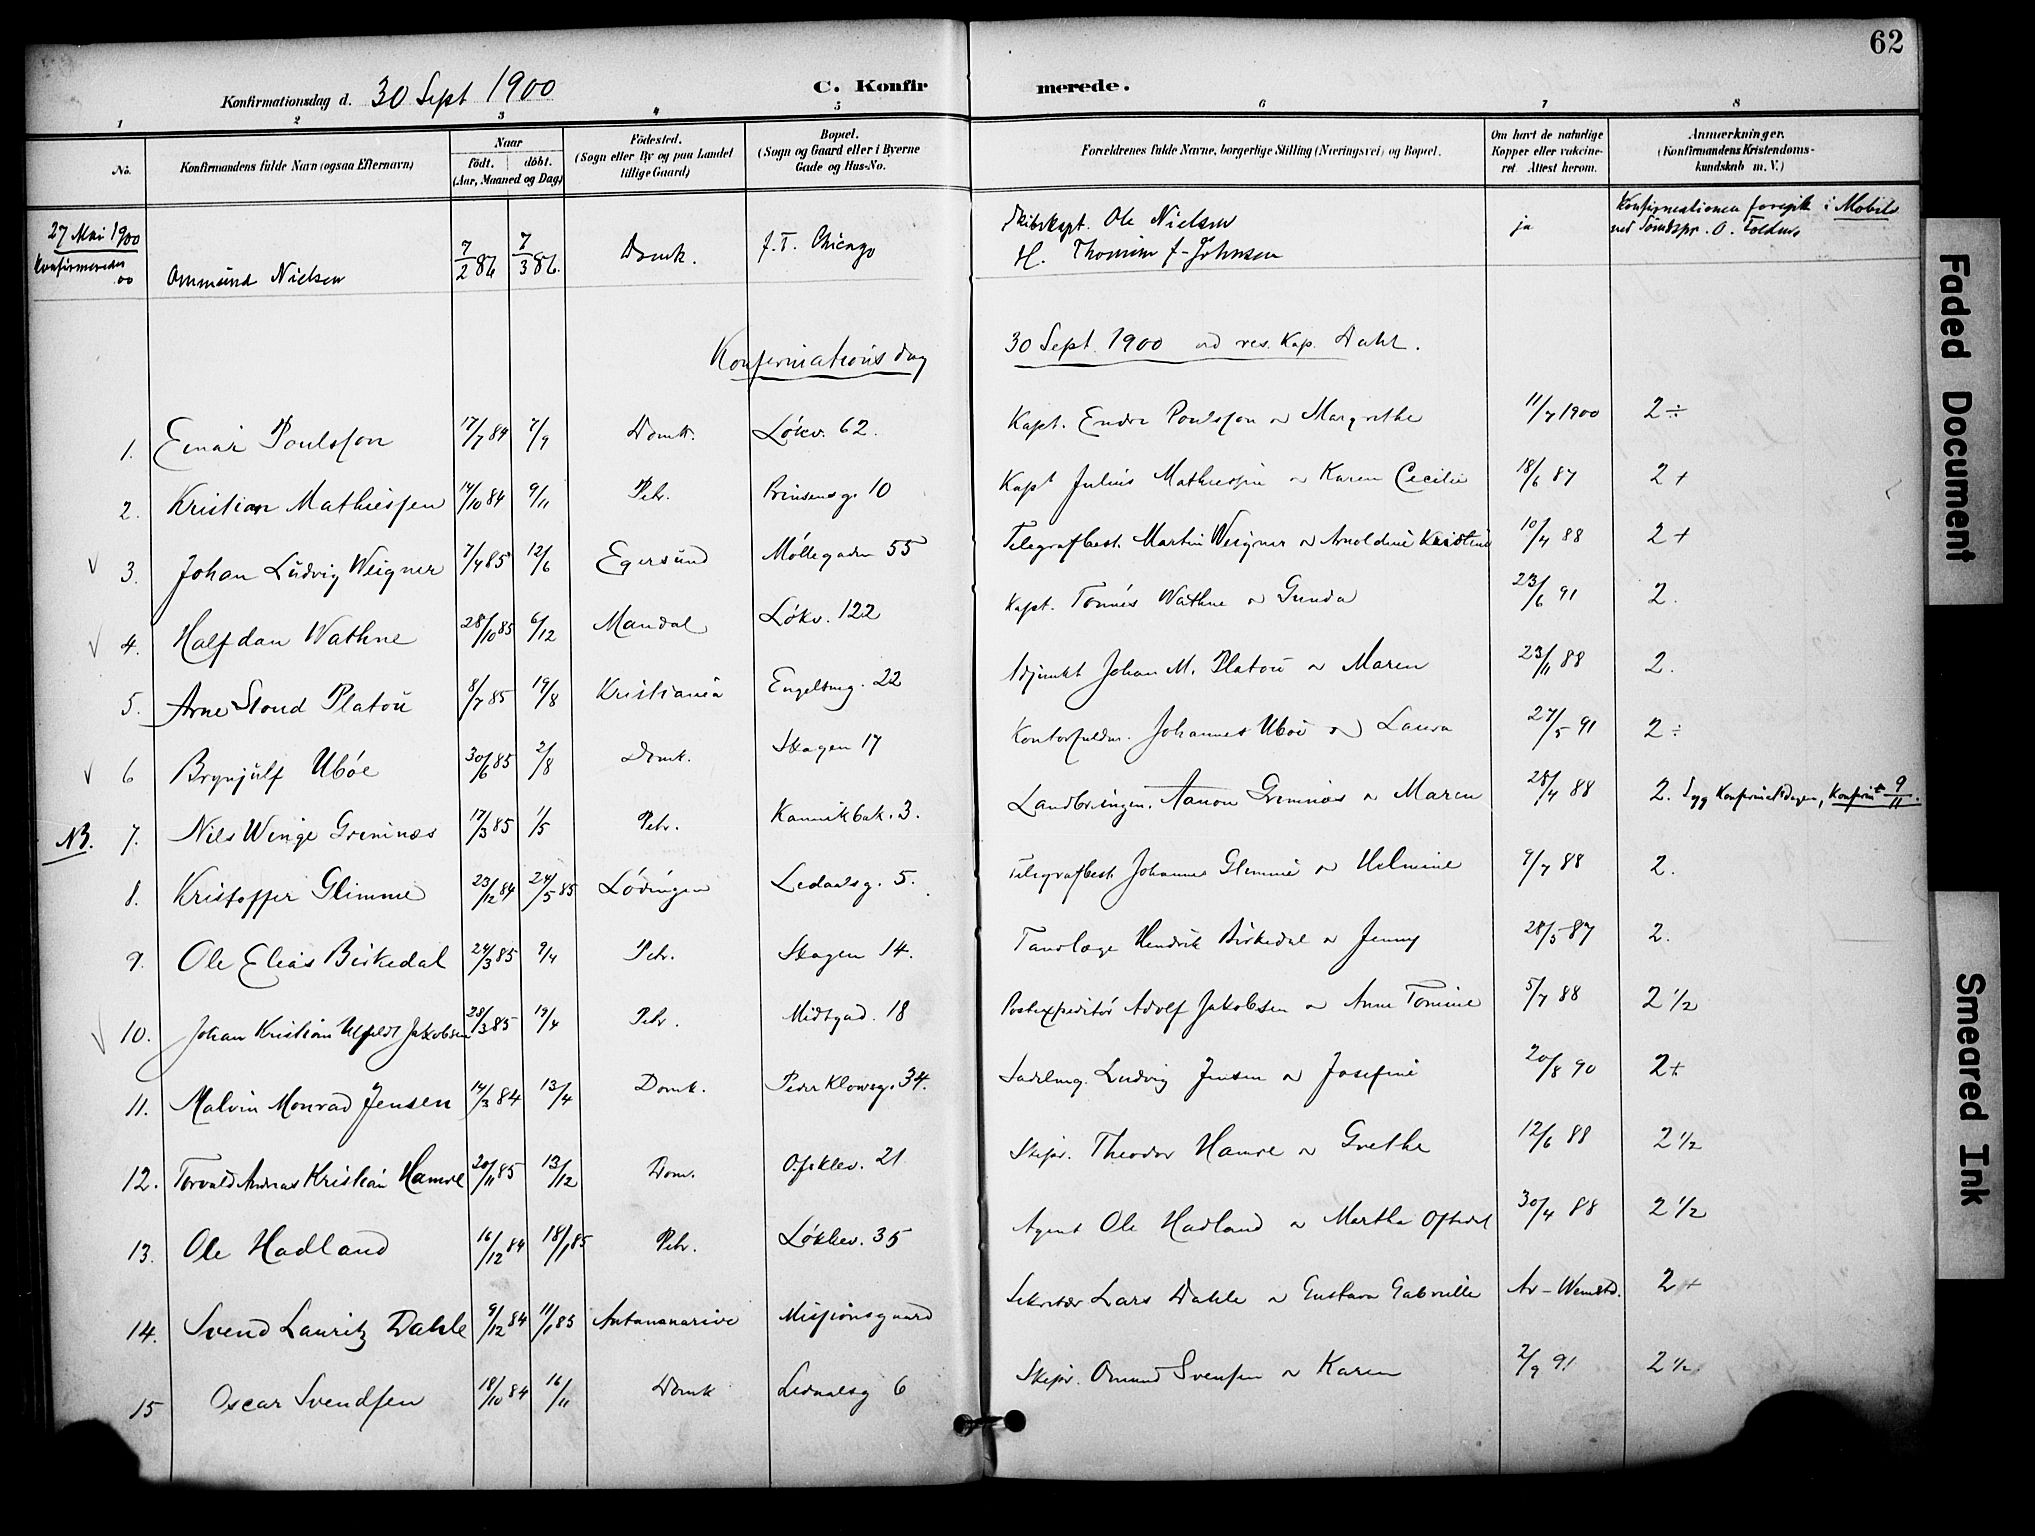 62
Konfirmationsdag d. 30 Sept 1900 C. Konfirmerede.
1 2 3 4 5 6 7 8
No. Konfirmandens fulde Navn (ogsaa Efternavn) Naar födt. döbt. (Aar, Maaned og Dag) Födested. (Sogn eller By og paa Landet tillige Gaard) Bopæl. (Sogn og Gaard eller i Byerne Gade og Hus-No. Forældrenes fulde Navne, borgerlige Stilling (Næringsvei) og Bopæl. Om havt de naturlige Kopper eller vakcineret Attest herom. Anmærkninger. (Konfirmandens Kristendomskundskab m. V.)
27 Mai 1900 Skibskapt. Ole Nielsen ja Konfirmationen foregik i Mobile
Ommund Nielsen 7/2 86 7/3 86. Domk. f. T. Chicago H. f. Johnsen
Konfirmationsdag 30 Sept. 1900 ved res. Kap. Dahl.
1. Einar Poulsson 17/7 84 7/9 Domk. Løkv. 62. Kapt. Endre Poulsson og Margrethe 11/7 1900 2 ÷
2. Kristian Mathiessen 14/10 84 9/11 Petr. Prinsensg. 10 Kapt Julius Mathiessen og Karen Cecilie 18/6 87 2 +
3. Johan Ludvig Weigner 7/4 85 12/6 Egersund Møllegaden 55 Telegrafbest. Martin Weigner og Arnoldine Kristine 10/4 88 2 +
4. Halfdan Wathne 28/10 85 6/12 Mandal Løkv. 122 Kapt. Tønnes Wathne og Gunda 23/6 91 2.
5. Arne Stoud Platou 8/7 85 19/8 Kristiania Engelsmg. 22 Adjunkt Johan M. Platou og Maren 23/11 88 2.
6 Brynjulf Ubøe 30/6 85 2/8 Domk. Skagen 17 Kontorfuldm. Johannes Ubøe og Laura 27/5 91 2 ÷
NB. 7. Nils Winge Grimnæs 17/3 85 1/5 Petr. Kannikbak. 3. Landbringen. Aanon Grimnæs og Maren 28/4 88 2. Syg Konfirmatdagen, Konfirm 9/11.
8. Kristoffer Glimme 23/12 84 24/5 85 Lødingen Ledaalsg. 5. Telegrafbest Johannes Glimme og Helmine 9/7 88 2.
9. Ole Elias Birkedal 24/3 85 9/4 Petr. Skagen 14. Tandlæge Hendrik Birkedal og Jenny 28/5 87 2.
10. Johan Kristian Ulfeldt Jakobsen 28/3 85 19/4 Petr. Midtgad. 18 Postexpeditør Adolf Jakobsen og Anne Tomine 5/7 88 2 1/2
11. Malvin Monrad Jensen 14/3 84 13/4 Domk. Peder Klowsg. 34. Sadelmg. Ludvig Jensen og Josefine 20/8 90 2+
12. Torvald Andreas Kristian Hamre 20/11 85 13/12 Dom. Ofsklev. 21 Skipr. Theodor Hamre og Grethe 12/6 88 2 1/2
13. Ole Hadland 16/12 84 18/1 85 Petr. Løkkev. 35 Agent Ole Hadland og Martha Oftedal 30/4 88 2 1/2
14. Svend Lauritz Dahle 9/12 84 11/1 85 Antananarivo Missionsgaard Sekretær Lars Dahle og Gustava Gabrielle 2 +
15 Oscar Svendsen 18/10 84 16/11 Domk Ledaalsg 6 Skipr. Omund Svensen og Karen 2/9 91 2 1/2
Faded Document
Smeared Ink